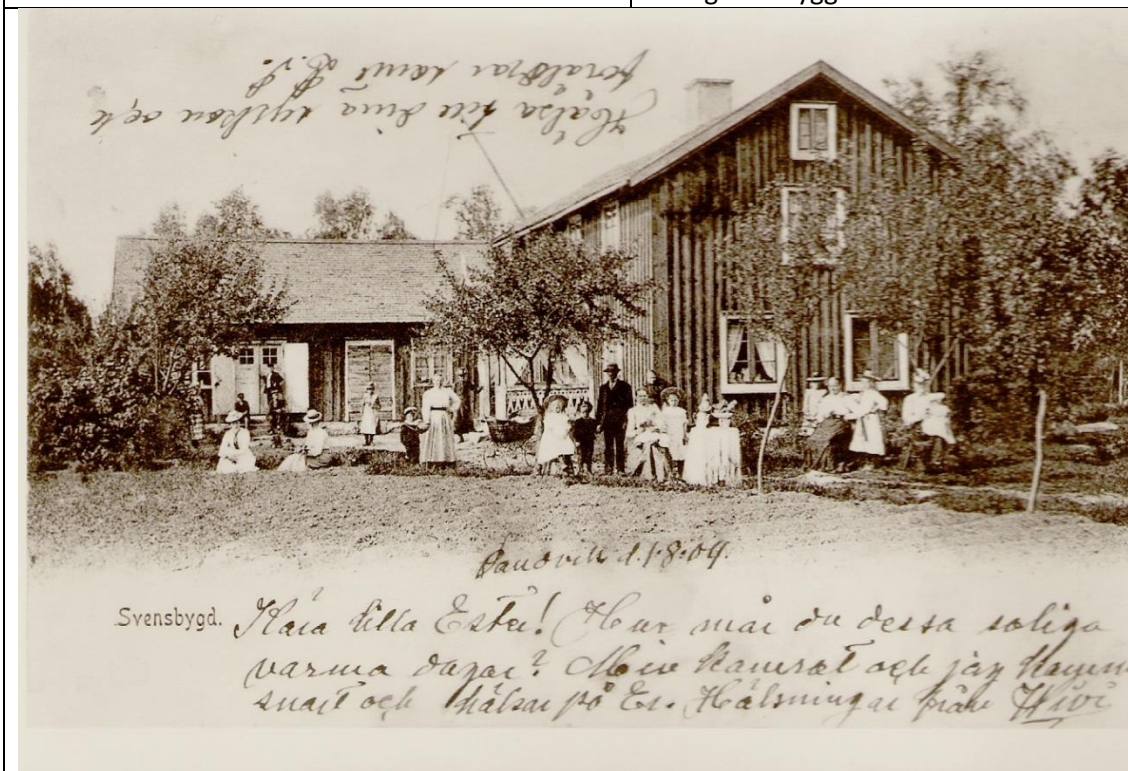 Hälsa till dina syskon och
föräldrar samt
Sandvik d. 1.8.09.
Svensbygd. Kära lilla Ester! Hur mår du dessa soliga
varma dagar? Min kamrat och jag
snart och hälsar på Er. Hälsningar från